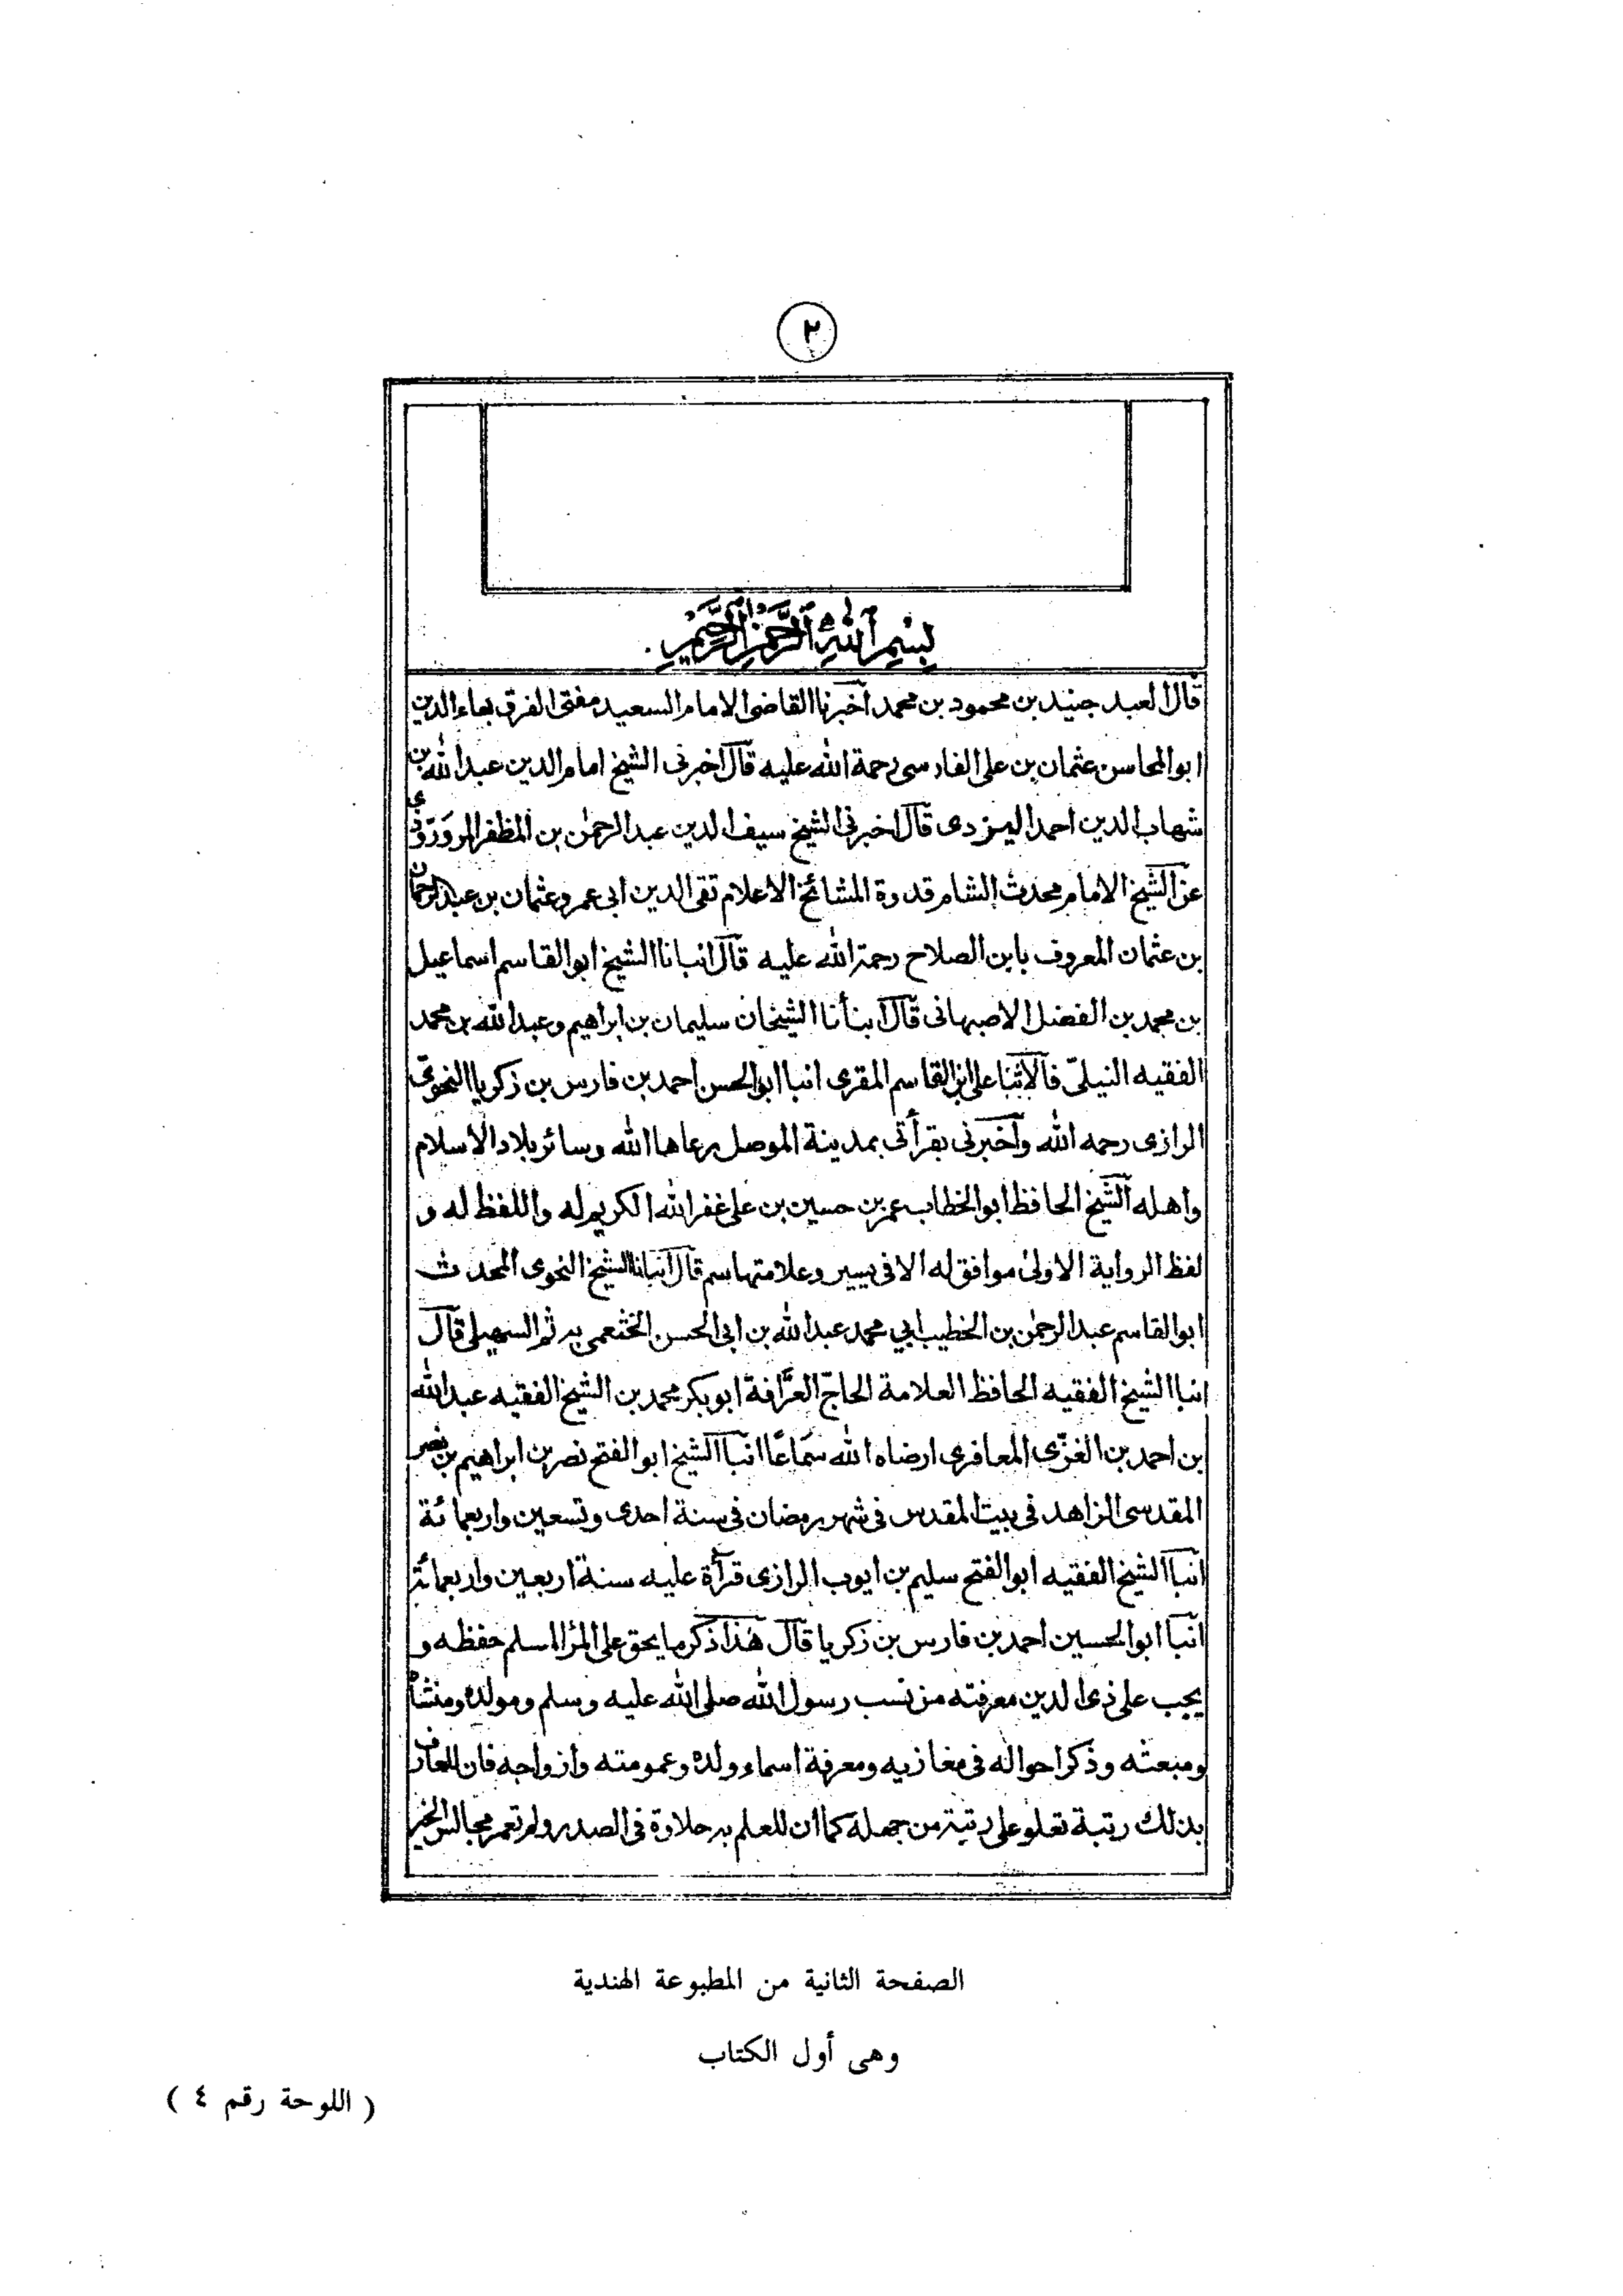 ٢
بسم الله الرحمن الرحيم
قال العبد جنيد بن محمود بن محمد اخبرنا القاضى الامام السعيد مفتى الفرق بهاء الدين
ابو المحاسن عثمان بن على الفارسى رحمة الله عليه قال اخبرنى الشيخ امام الدين عبد الله بن
شهاب الدين احمد اليزدى قال اخبرنى الشيخ سيف الدين عبد الرحمٰن بن المظفر المروروذى
عن الشيخ الامام محدث الشام قدوة المشائخ الاعلام تقى الدين ابى عمرو عثمان بن عبد الرحمان
بن عثمان المعروف بابن الصلاح رحمة الله عليه قال انبانا الشيخ ابو القاسم اسماعيل
بن محمد بن الفضل الاصبهانى قال ابنأنا الشيخان سليمان بن ابراهيم وعبد الله بن محمد
الفقيه النيلىّ قالا على ابن القاسم المقرى انبا ابو الحسن احمد بن فارس بن زكريا النحوى
الرازى رحمه الله واخبرنى بقرأتى بمدينة الموصل رعاها الله وسائر بلاد الاسلام
واهله الشيخ الحافظ ابو الخطاب عمر بن حسين بن على غفر الله الكريم له واللفظ له و
لفظ الرواية الاولىٰ موافق له الا فى يسير وعلامتها سم قال انبانا الشيخ النحوى المحدث
ابو القاسم عبد الرحمٰن بن الخطيب ابي محمد عبد الله بن ابى الحسن الخثعمى ثم السهيلى قال
انبا الشيخ الفقيه الحافظ العلامة الحاجّ العرَّافة ابو بكر محمد بن الشيخ الفقيه عبد الله
بن احمد بن الغزّى المعافرى ارضاه الله سَمَاعًا انبا الشيخ ابو الفتح نصر بن ابراهيم بن نصر
المقدسى الزاهد فى بيت المقدس فى شهر رمضان فى سنة احدى وتسعين واربعمائة
انبا الشيخ الفقيه ابو الفتح سليم بن ايوب الرازى قرآة عليه سنة اربعين واربعمائة
انبا ابو الحسين احمد بن فارس بن زكريا قال هذا ذكر ما يحق على المرٔ المسلم حفظه و
يجب على ذى الدين معرفته من نسب رسول الله صلى الله عليه وسلم ومولده ومنشأه
ومبعثه وذكر احواله فى مغازيه ومعرفة اسماء ولده وعمومته وازواجه فان للعارف
بذلك رتبة تعلو على رتبة من جهله كما ان للعلم به حلاوة فى الصدر ولم تعمر مجالس الخير
الصفحة الثانية من المطبوعة الهندية
وهى أول الكتاب
( اللوحة رقم ٤ )